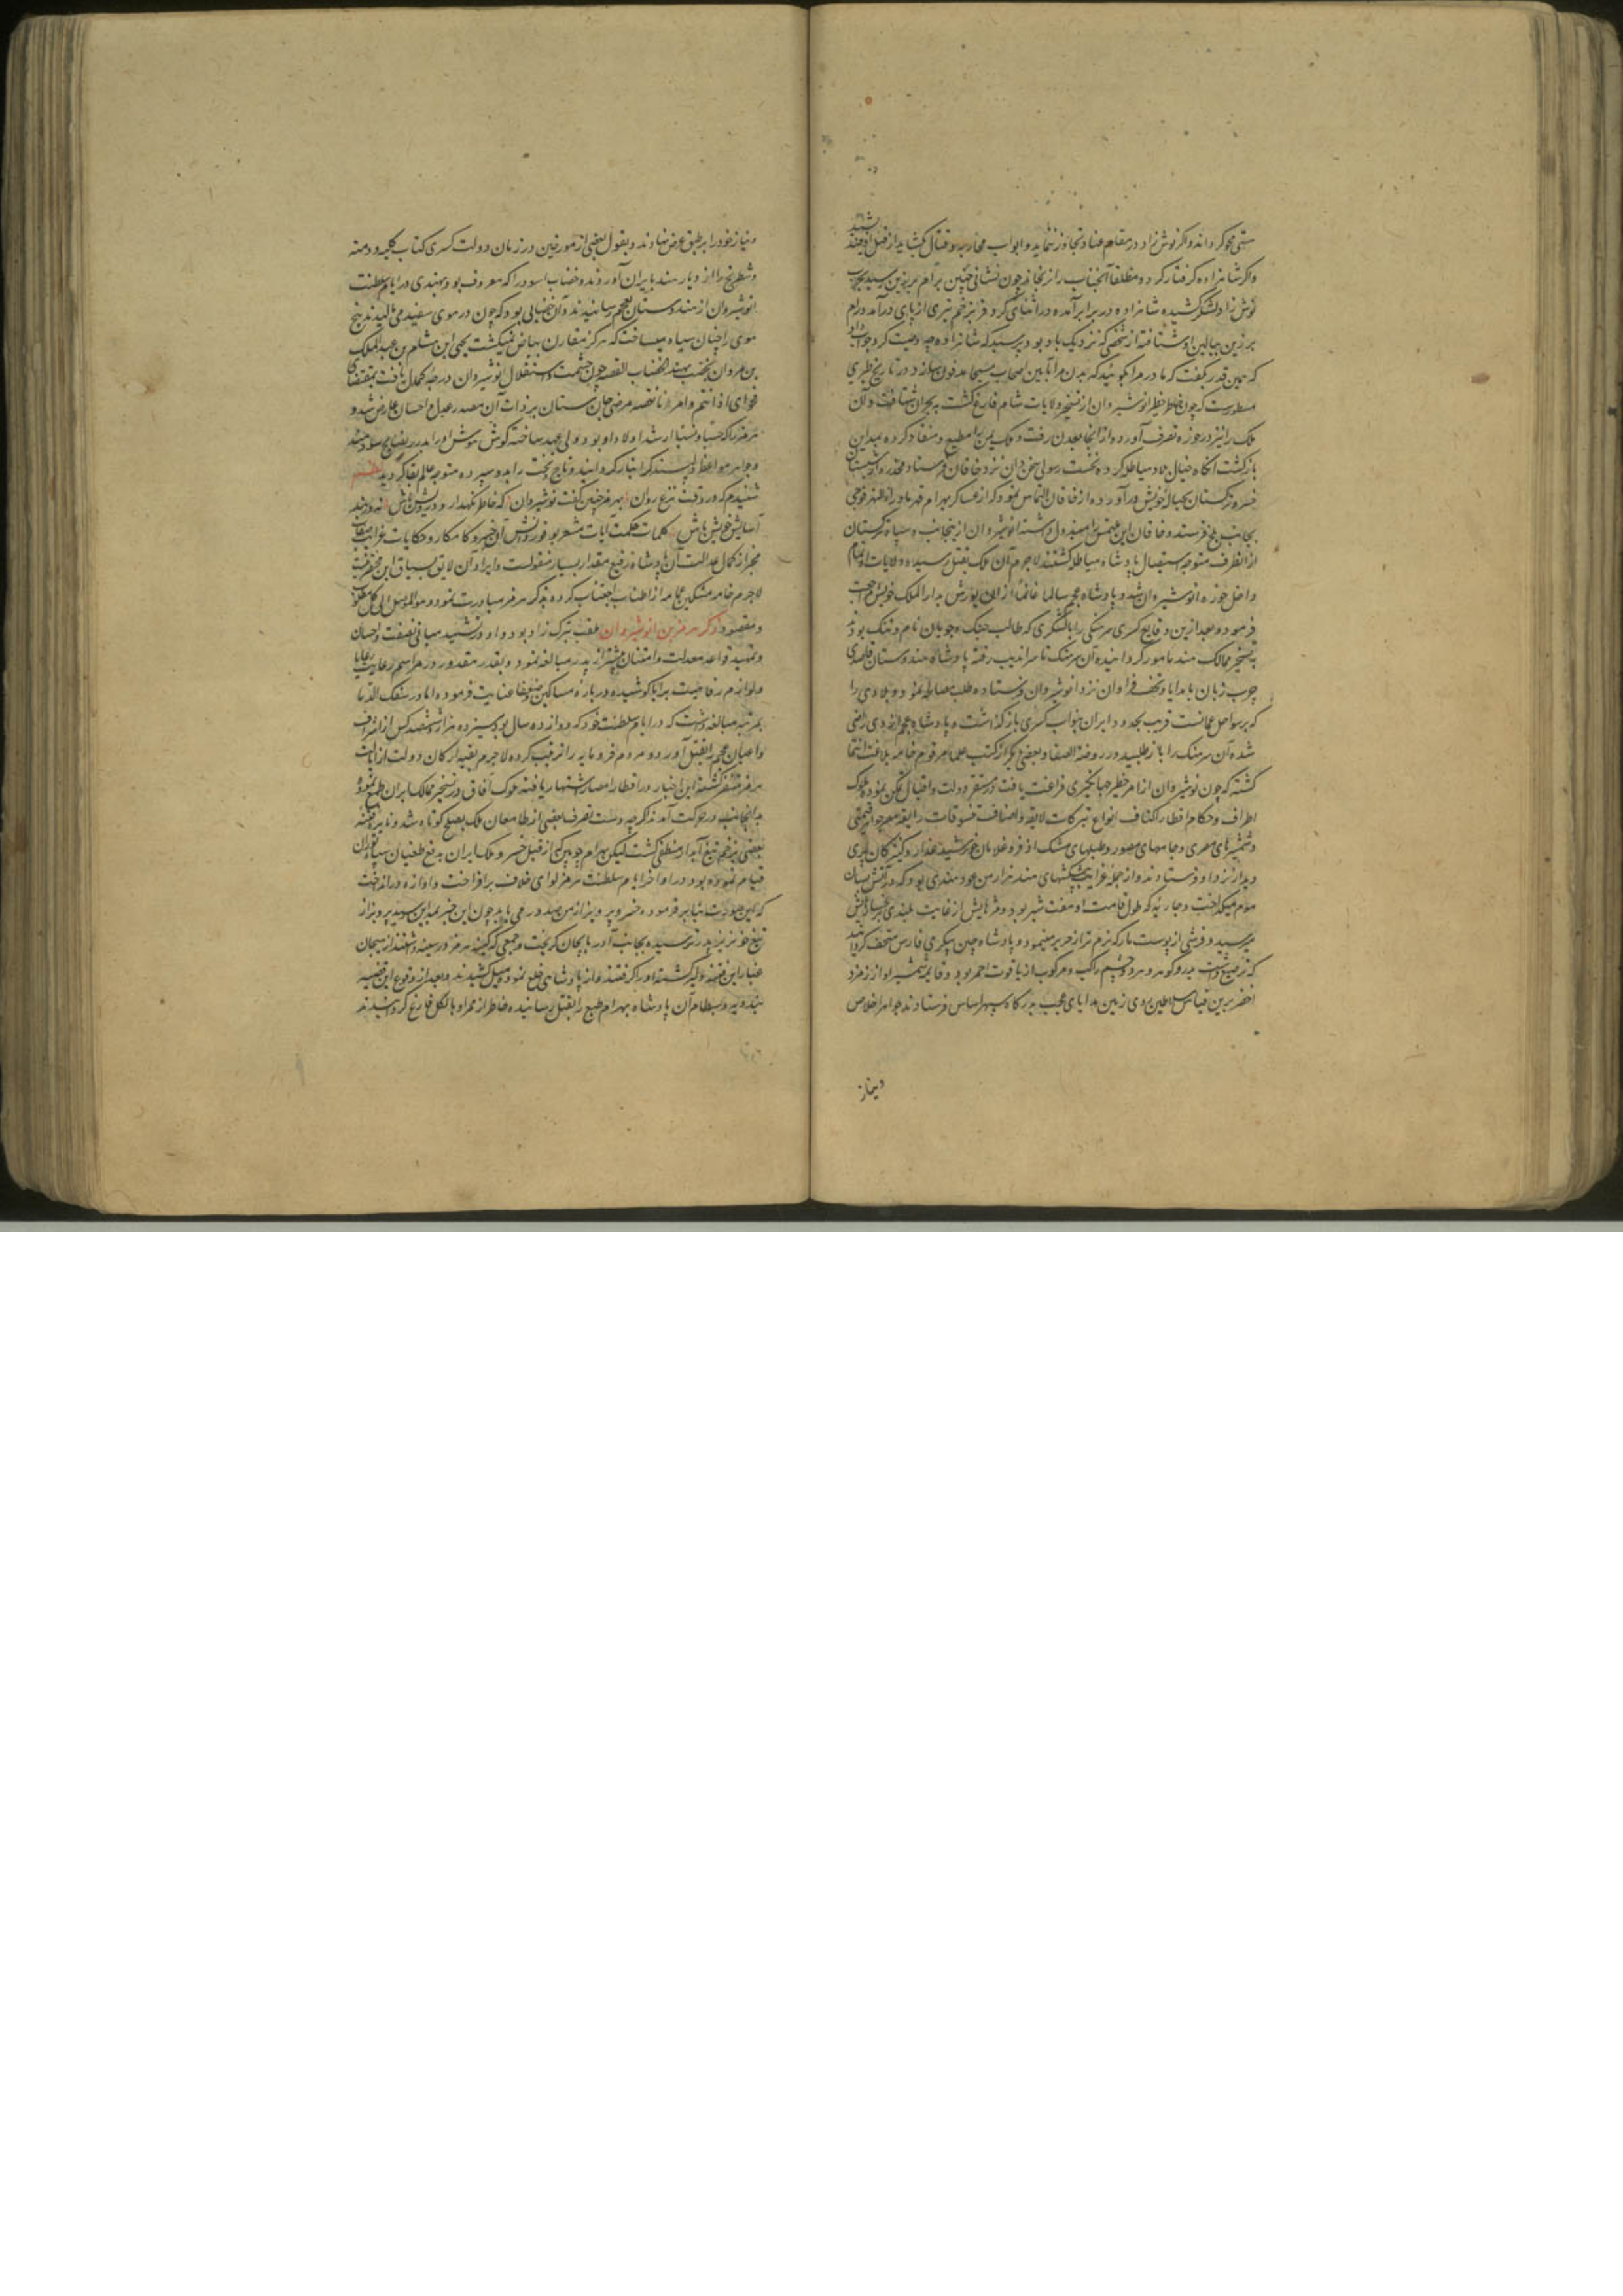 و اگر شاهزاده گرفتار گردد مطلقا آنجناب را نرنجاند چون نشانی چنین برام برزین رسید
نوش زاد لشکر کشیده شاهزاده در برابر آمده در اثنای گرو فر بزخم تیری از پای درآمد و رام
برزین ببالین او شتافته از شخصی که نزدیک باو بود پرسید که شاهزاده چه وصیت کرد جواب داد
که همین قدر گفت که مادر مرا بگوئید که بدن مرا بآیین اصحاب مسیحا مدفون سازد و در تاریخ طبری
مسطورست که چون خاطر خطیر انوشیروان از تسخیر ولایات شام فارغ گشت
ملک را نیز در حوزه تصرف آورد و از آنجا بعدن رفت و ملک یمن را مطیع و منقاد کرده بمداین
بازگشت آنگاه خیال بلاد هیاطله کرده نخست رسولی سخن دان نزد خاقان فرستاد
خسرو ترکستان بحباله خویش درآورده از خاقان التماس نمود که از عساکر بهرام قهر ماوراءالنهر فوجی
بجانب بلخ فرستد و خاقان این ملتمس را مبذول داشته انوشیروان ازینجانب و سپاه ترکستان
از آنطرف متوجه استیصال پادشاه هیاطله گشتند لاجرم آن ملک بقتل رسیده ولایات او تمام
داخل حوزه انوشیروان شد و پادشاه عجم سالما غانما از ان یورش بدار الملک خویش مراجعت
فرمود و بعد ازین وقایع کسری سرهنگی را با لشکری که طالب جنگ و جویان نام و ننگ بودند
بتسخیر ممالک هند مامور گردانیده آن سرهنگ تا سراندیب رفته پادشاه هندوستان قاصدی
چرب زبان با هدایا و تحف فراوان نزد انوشیروان فرستاده طلب مصالحه نمود و بلادی را
که بر سواحل عمانست قریب بحدود ایران بنواب کسری باز گذاشت و پادشاه عجم از وی راضی
شده آن سرهنگ را باز طلبید و در روضة الصفا و بعضی دیگر از کتب علما مرقوم خامه بلاغت انتما
گشته که چون نوشیروان از امر خطیر جهانگیری فراغت یافت و در مستقر دولت و اقبال تمکن نمود ملوک
اطراف و حکام اقطار اکناف انواع تبرکات لایقه و اصناف تنسوقات رایقه
و شمشیرهای مصری و جامهای مصور و طبلهای مشک اذفر و غلامان خورشید عذار و کنیزکان پری
دیدار نزد او فرستادند و از جمله غرایب پیشکشهای هند هزار من عود هندی بود که در آتش بسان
موم میگداخت و جاریه که طول قامت او هفت شبر بود و مژهایش از غایت بلندی برخساره‌اش
میرسید و فرشی از پوست مار که نرم تر از حریر مینمود و پادشاه چین پیکری فارس متحف گردانید
که ترصیع داشت بدر و گوهر و هر دو چشم راکب و مرکوب از یاقوت احمر بود و قایمه شمشیر او از زمرد
اخضر برین قیاس سلاطین روی زمین هدایای عجیب بدرگاه سپهر اساس فرستادند جواهر اخلاص
و نیاز
و نیاز خود را بر طبق عرض نهادند و بقول بعضی از مورخین در زمان دولت کسری کتاب کلیله و دمنه
و شطرنج را از دیار هند بایران آوردند و خضاب اسود را که معروف بود بهندی در ایام سلطنت
انوشیروان از هندوستان بعجم رسانیدند و آن خضابی بود که چون در موی سفید می مالیدند بیخ
موی را چنان سیاه میساخت که هرگز متقارن بیاض نمیگشت یحیی ابن هشام بن عبدالملک
القصه چون حشمت و استقلال نوشیروان درجه کمال یافت بمقتضای
فحوای اذا تم امر دنا نقصه مرض جان ستان بر ذات آن مصدر عدل و احسان عارض شد و
هرمز را که حسبا و نسبا ارشد اولاد او بود ولی عهد ساخته گوش هوش او را بدرر نصایح سودمند
و جواهر مواعظ دلپسند گرانبار گردانید و تاج و تخت را بدو سپرده متوجه عالم بقا گردید نظم
شنیدم که در وقت نزع روان بهرمز چنین گفت نوشیروان که خاطر نگهدار درویش باش نه در بند
آسایش خویش باش کلمات حکمت آیات
مخبر از کمال عدالت آن پادشاه رفیع مقدار بسیار منقولست و ایراد آن لایق سیاق این مختصر نیست
لاجرم خامه مشکین عمامه از اطناب اجتناب کرده بذکر هرمز مبادرت نمود
و مقصود ذکر هرمز بن انوشیروان لقب ترک زاد بود و او در تشیید مبانی نصفت و احسان
و تمهید قواعد معدلت و امتنان بیشتر از پدر مبالغه نمود و بقدر مقدور در مراسم رعایت رعایا
و لوازم رفاهیت برایا کوشیده در باره مساکین و ضعفا عنایت فرموده اما در سفک الدما
بمرتبه مبالغه داشت که در ایام سلطنت خود که دوازده سال بود سیزده هزار و ششصد کس از اشراف
و اعیان عجم را بقتل آورد و مردم فرومایه را تربیت کرده لاجرم بقیه ارکان دولت از
هرمز متنفر گشته این اخبار در اقطار امصار اشتهار یافته ملوک آفاق در تسخیر ممالک ایران طمع نموده
بدانجانب در حرکت آمدند اگرچه دست تصرف بعضی از طامعان ملک بصلح کوتاه شد و نایره فتنه
بعضی بزخم تیغ آبدار منطفی گشت لیکن بهرام چوبین که از قبل خسرو ملک ایران بدفع طغیان سپاه توران
قیام نموده بود در اواخر ایام سلطنت هرمز لوای خلاف برافراخت و آوازه در انداخت
که این صورت بنا بر فرموده خسرو پرویز از من صدور می یابد چون این خبر بمداین رسید پرویز از
تیغ خونریز پدر ترسیده بجانب آذربایجان گریخت و جمعی که کینه هرمز در سینه داشتند از هیجان
غبار این فتنه دلیر گشته او را گرفتند و از پادشاهی خلع نموده میل کشیدند و بعد از وقوع این قضیه
بندویه و بسطام آن پادشاه بهرام طبع را بقتل رسانیده خاطر از ممر او بالکل فارغ گردانیدند